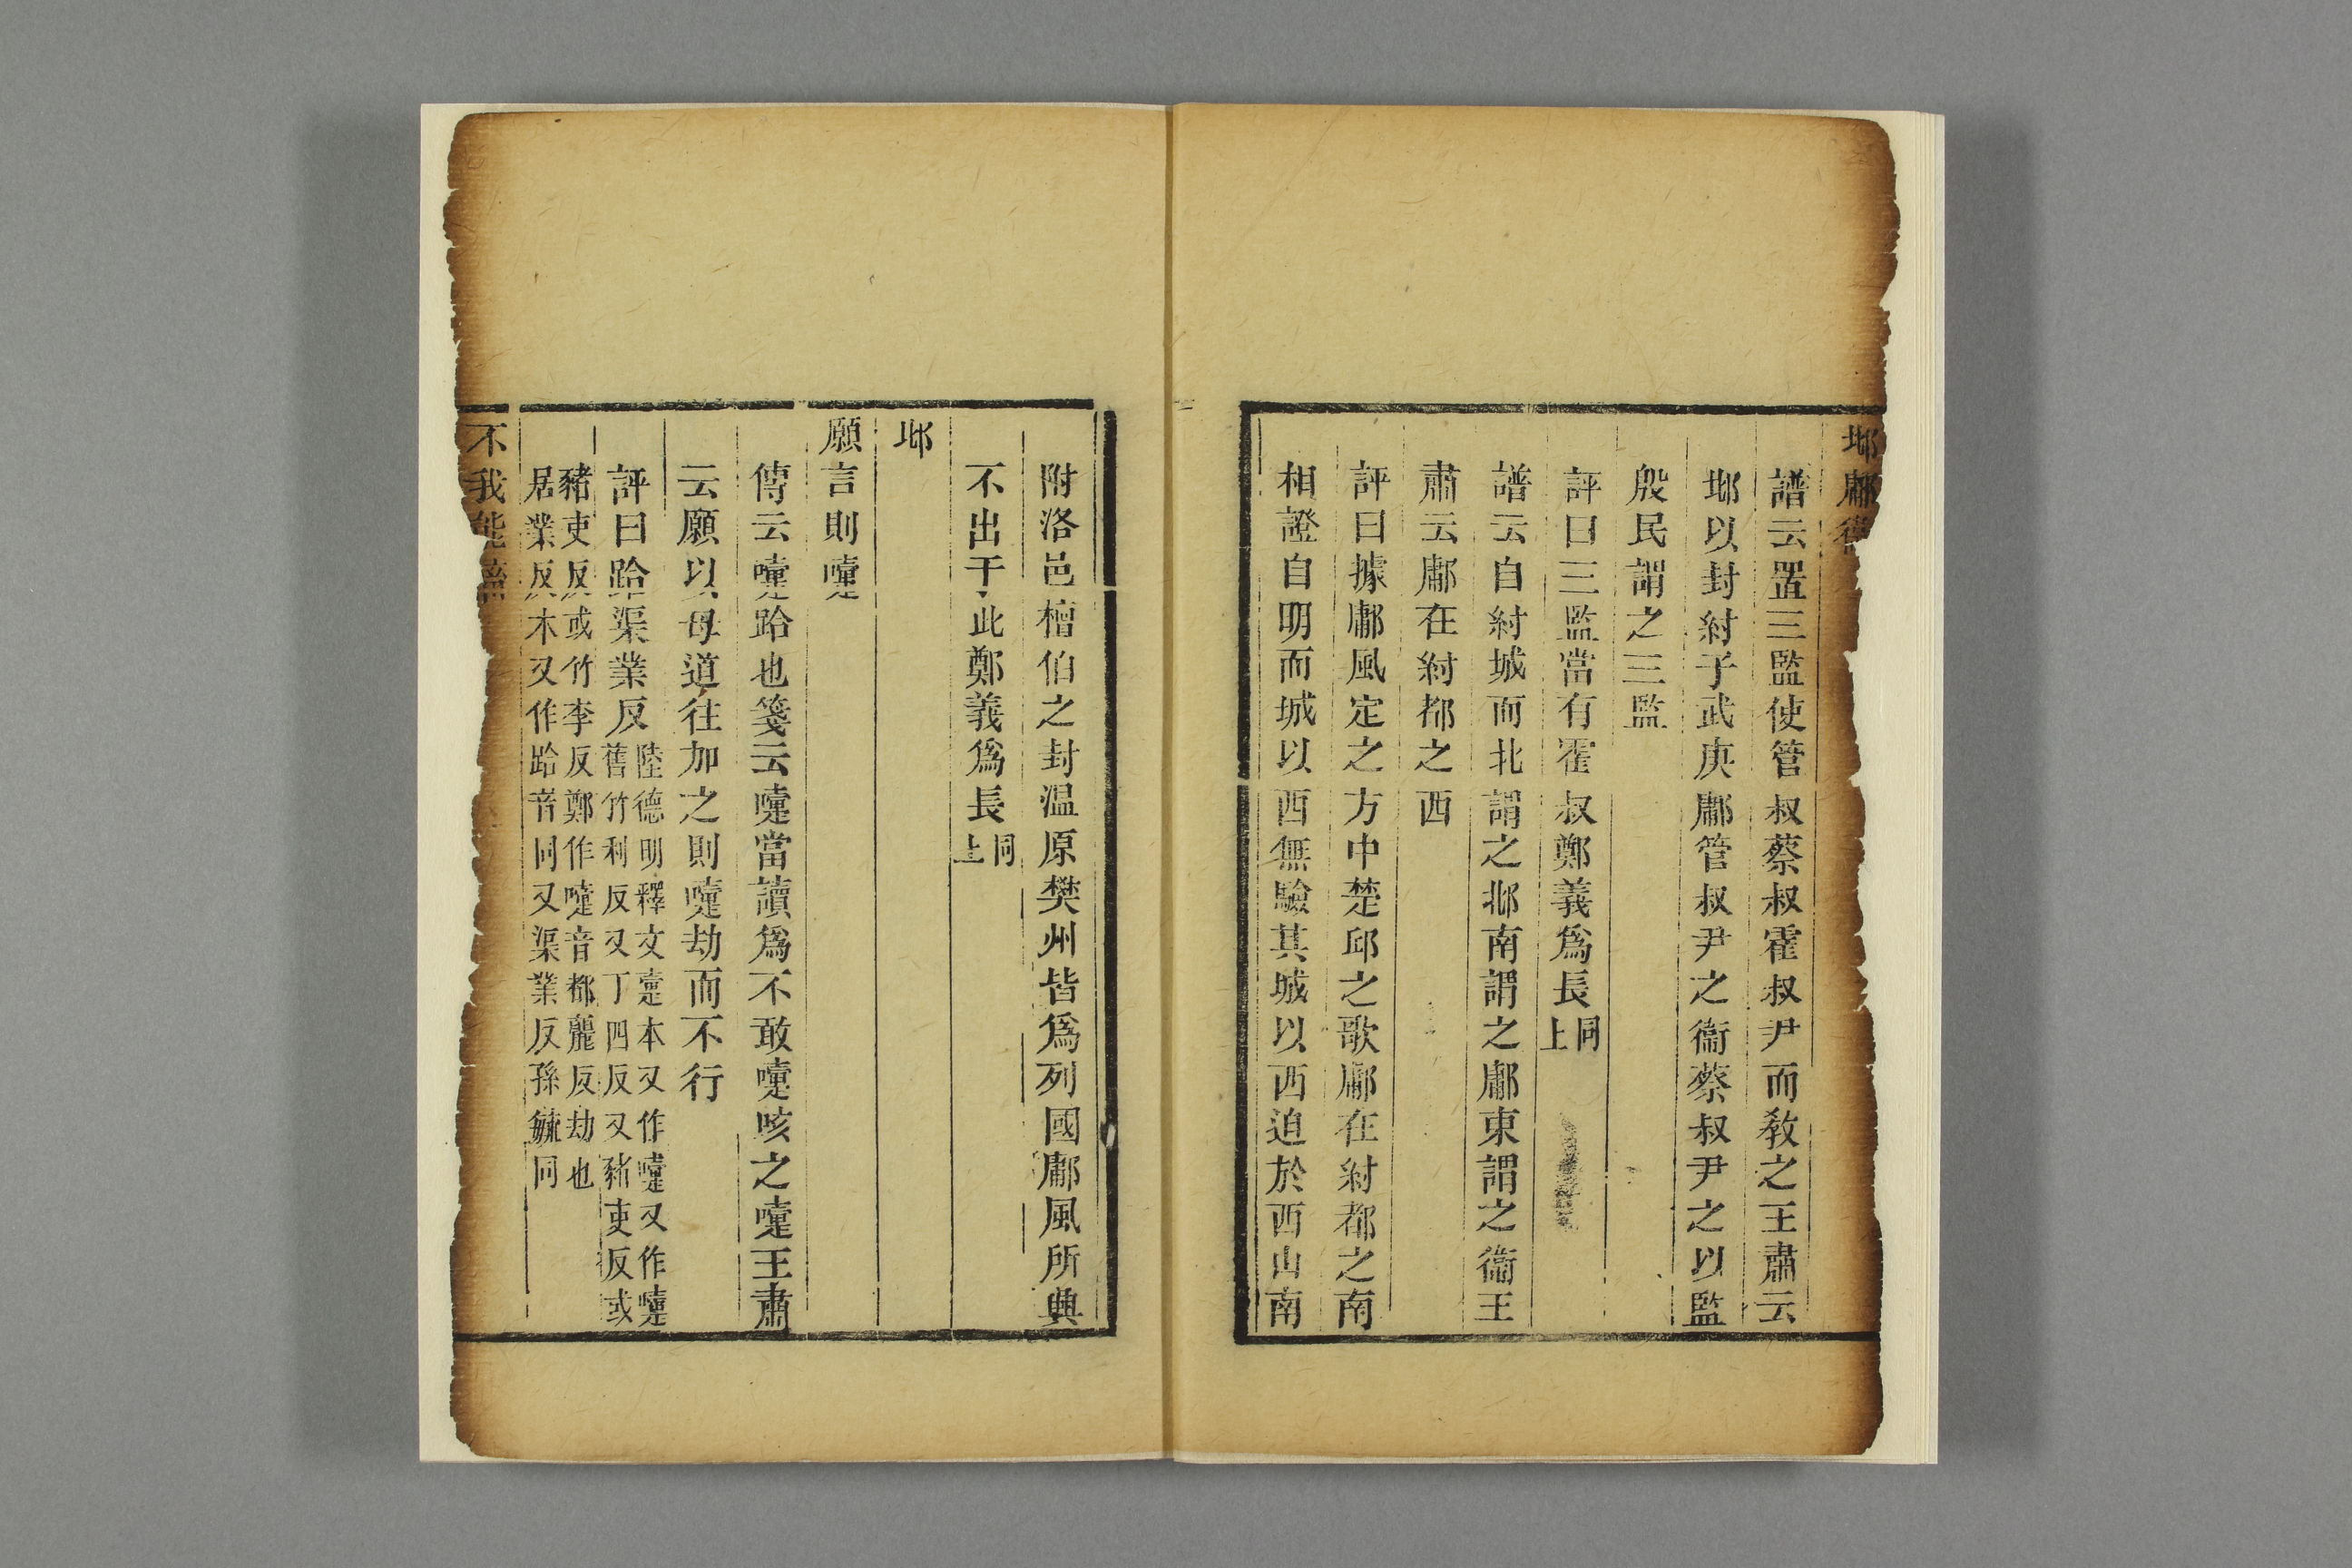 邶鄘衛
譜云置三監使管叔蔡叔霍叔尹而敎之王肅云
邶以封紂子武庚鄘管叔尹之衞蔡叔尹之以監
殷民謂之三監
評曰三監當有霍叔鄭義爲長同上
譜云自紂城而北謂之邶南謂之鄘東謂之衞王
肅云鄘在紂都之西
評曰據鄘風定之方中楚邱之歌鄘在紂都之南
相證自明而城以西無驗其城以西迫於西山南
附洛邑檀伯之封温原樊州皆爲列國鄘風所興
不出于此鄭義爲長同上
邶
願言則嚏
傳云嚏跲也箋云嚏當讀爲不敢嚏咳之嚏王肅
云願以母道往加之則嚏劫而不行
評曰跲渠業反陸德明釋文疐本又作嚏又作㖷
舊竹利反又丁四反又豬吏反或
豬吏反或竹季反鄭作嚏音都麗反劫也
居業反本又作跲音同又渠業反孫毓同
不我能慉